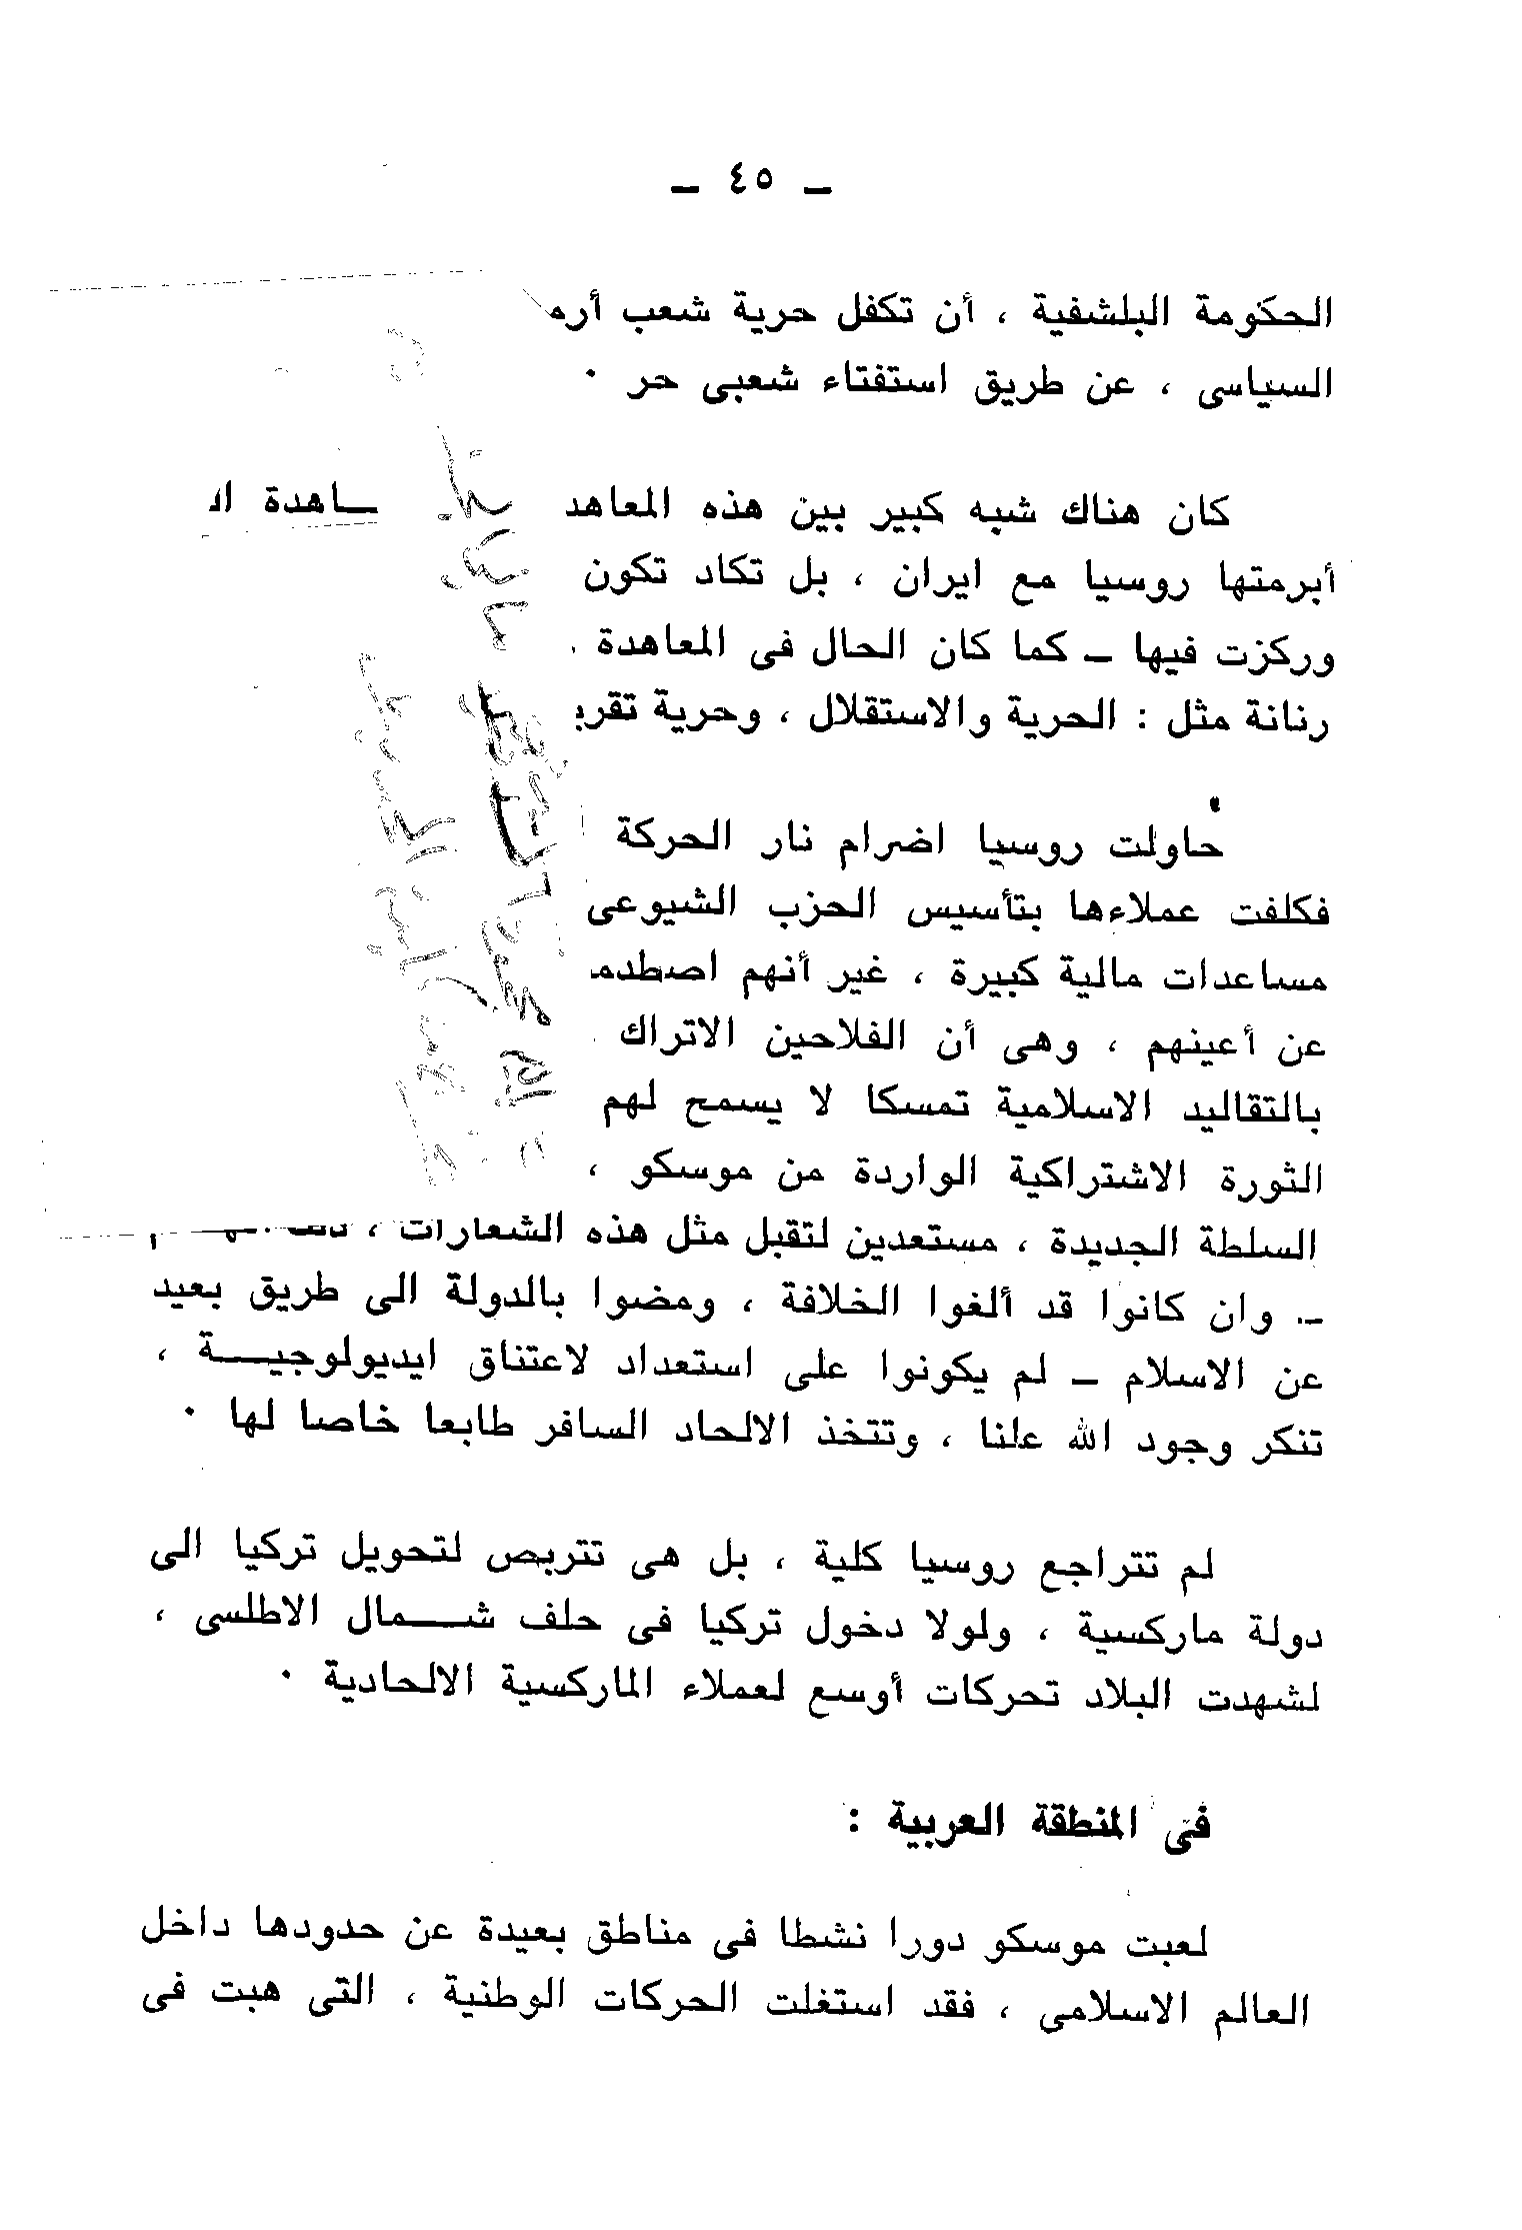 ـ ٤٥ ـ
الحكومة البلشفية ، أن تكفل حرية شعب أرم
السياسى ، عن طريق استفتاء شعبى حر ٠
كان هناك شبه كبير بين هذه المعاهد ـاهدة ا
أبرمتها روسيا مع ايران ، بل تكاد تكون
وركزت فيها ـ كما كان الحال فى المعاهدة
رنانة مثل : الحرية والاستقلال ، وحرية تقري
حاولت روسيا اضرام نار الحركة
فكلفت عملاءها بتأسيس الحزب الشيوعى
مساعدات مالية كبيرة ، غير أنهم اصطدمـ
عن أعينهم ، وهى أن الفلاحين الاتراك
بالتقاليد الاسلامية تمسكا لا يسمح لهم
الثورة الاشتراكية الواردة من موسكو ،
السلطة الجديدة ، مستعدين لتقبل مثل هذه الشعارات ،
ـ وان كانوا قد ألغوا الخلافة ، ومضوا بالدولة الى طريق بعيد
عن الاسلام ـ لم يكونوا على استعداد لاعتناق ايديولوجيـــة ،
تنكر وجود الله علنا ، وتتخذ الالحاد السافر طابعا خاصا لها ٠
لم تتراجع روسيا كلية ، بل هى تتربص لتحويل تركيا الى
دولة ماركسية ، ولولا دخول تركيا فى حلف شـــمال الاطلسى ،
لشهدت البلاد تحركات أوسع لعملاء الماركسية الالحادية ٠
فى المنطقة العربية :
لعبت موسكو دورا نشطا فى مناطق بعيدة عن حدودها داخل
العالم الاسلامى ، فقد استغلت الحركات الوطنية ، التى هبت فى